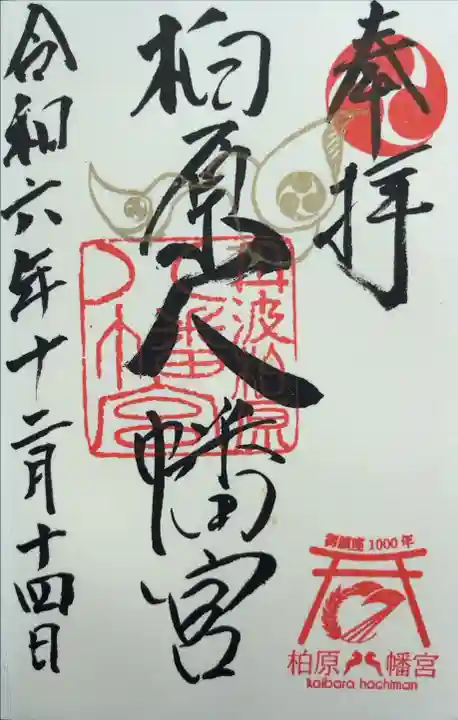 奉拝
柏原八幡宮
令和六年十二月十四日
丹波柏原
八幡宮
御鎮座1000年
柏原八幡宮
kaibara hachiman